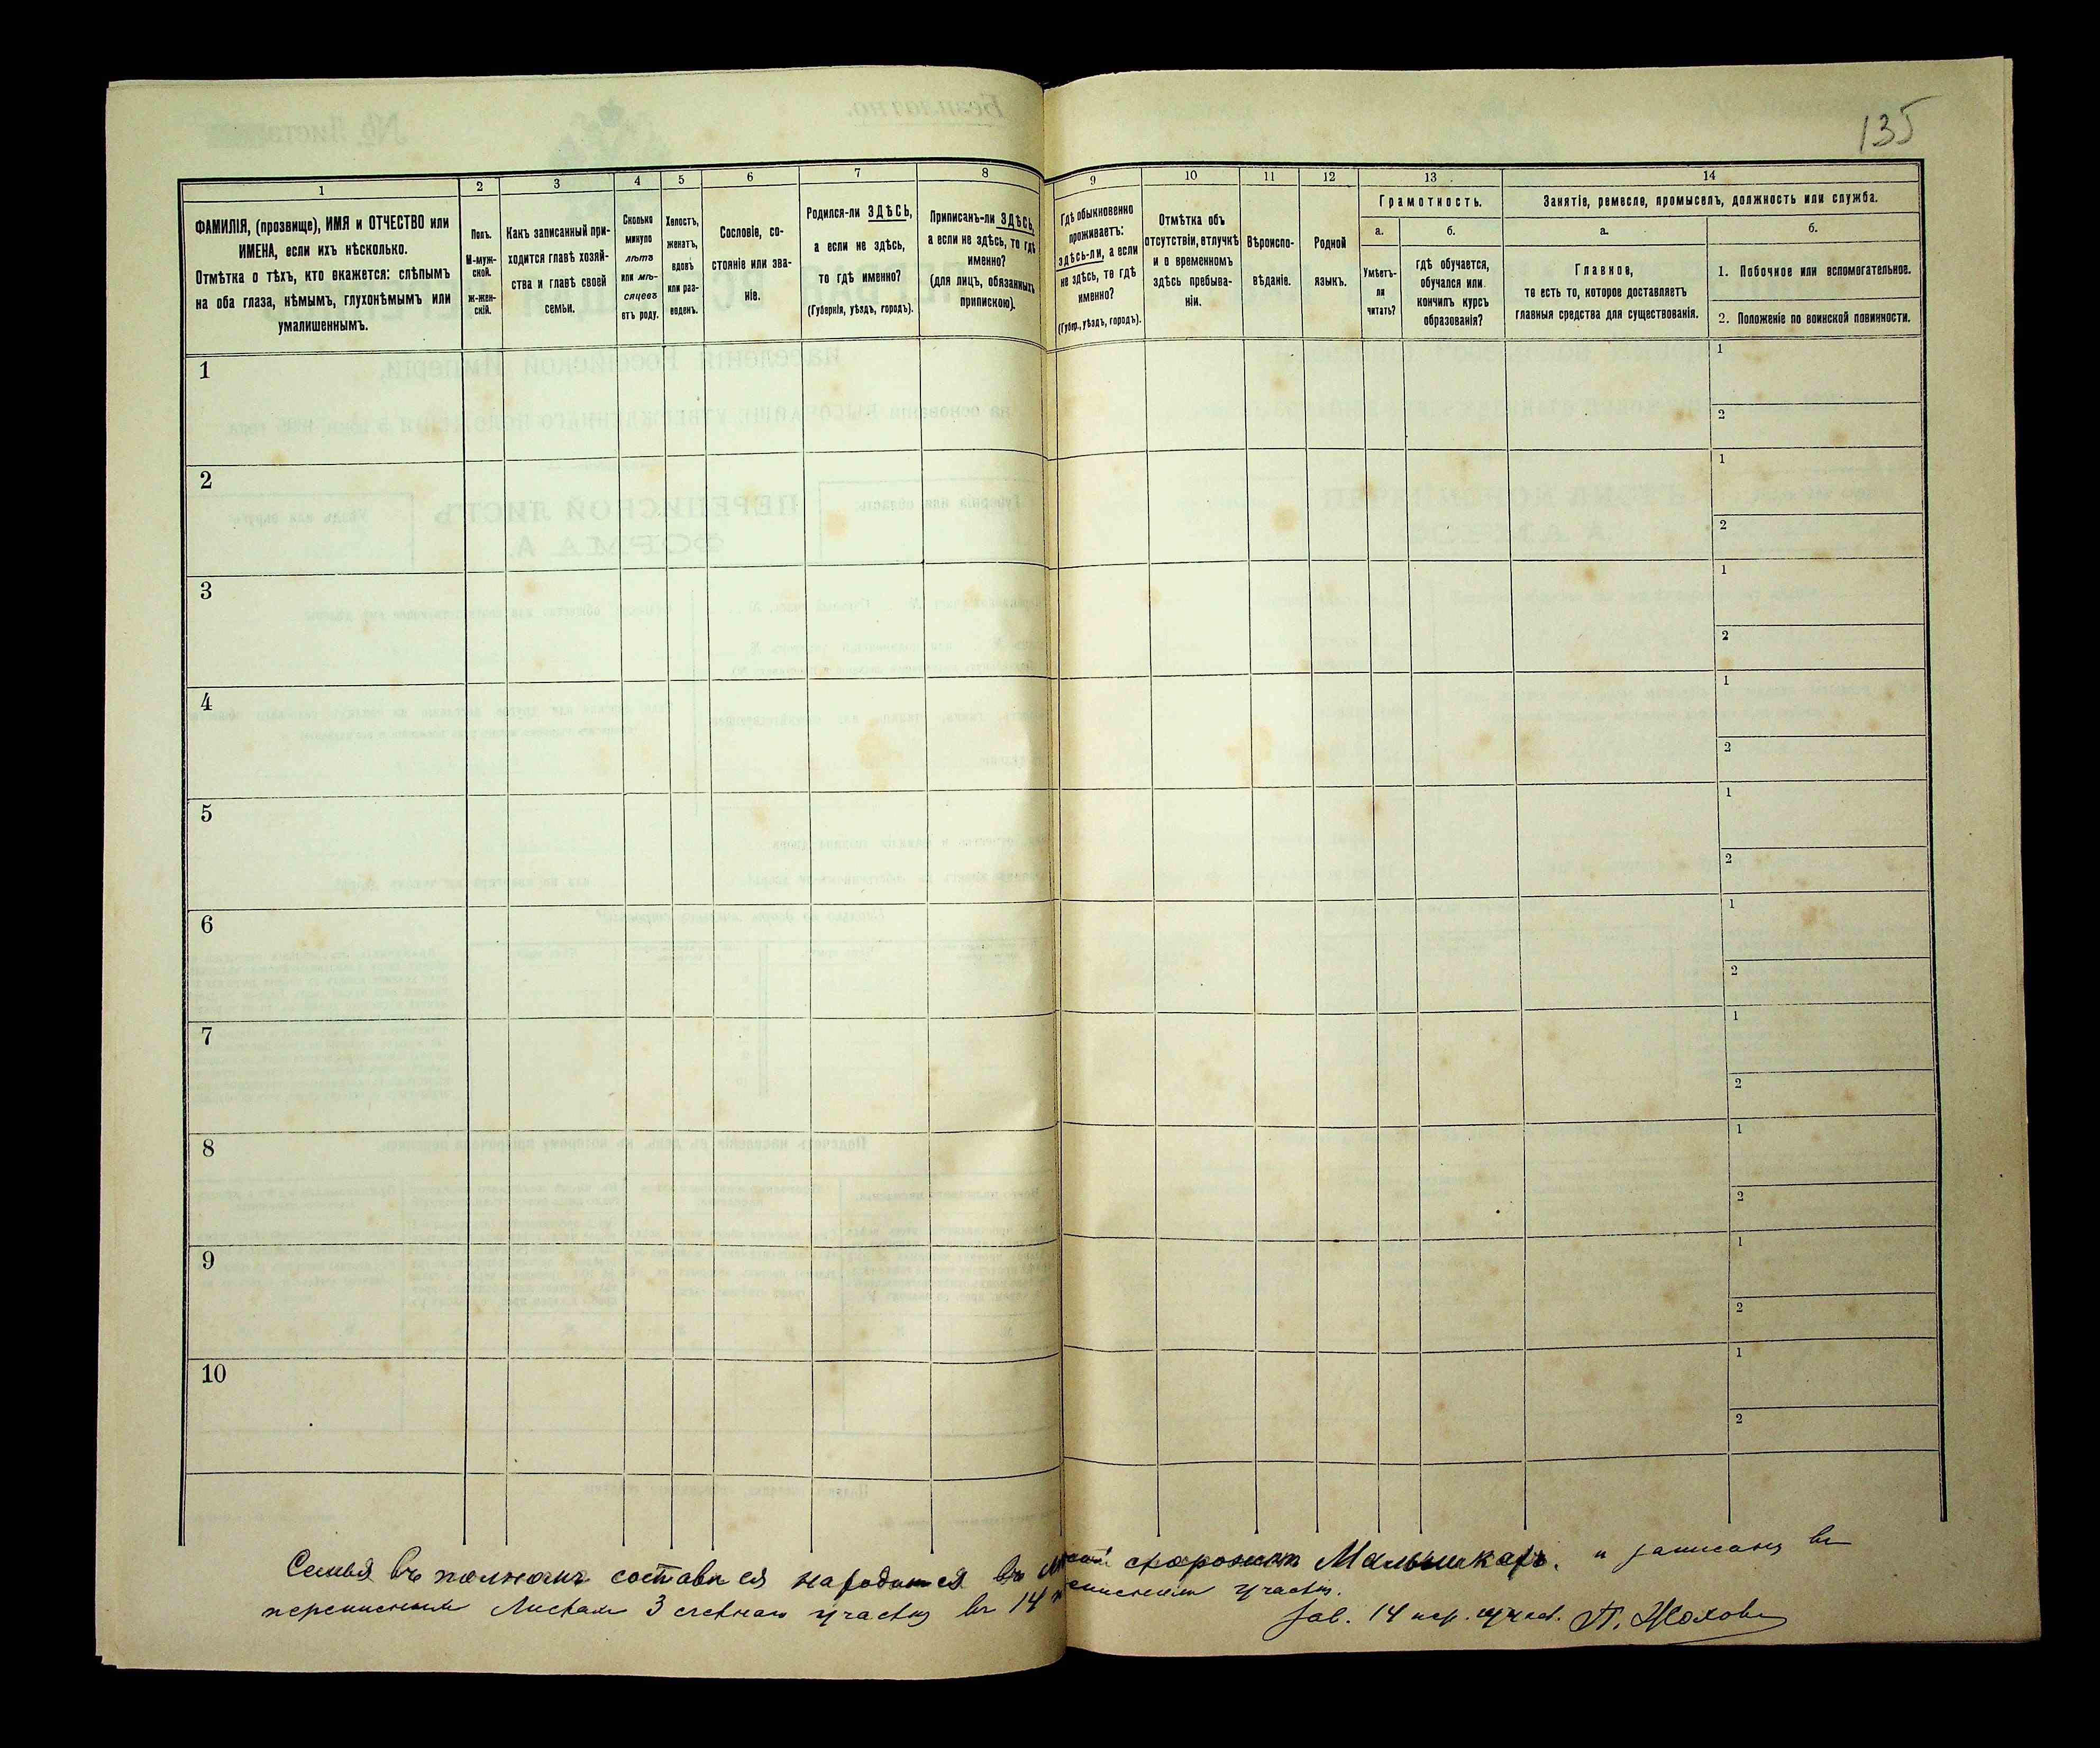 135
1 2 3 4 5 6 7 8 9 10 11 12 13 14
ФАМИЛІЯ, (прозвище), ИМЯ и ОТЧЕСТВО или
ИМЕНА, если ихъ нѣсколько.
Отмѣтка о тѣхъ, кто окажется: слѣпымъ
на оба глаза, нѣмымъ, глухонѣмымъ или
умалишеннымъ.
Полъ.
М-муж-
ской.
ж-жен-
скій.
Какъ записанный при-
ходится главѣ хозяй-
ства и главѣ своей
семьи.
Сколько
минуло
лѣтъ
или мѣ-
сяцевъ
отъ роду.
Холостъ,
женатъ,
вдовъ
или раз-
веденъ.
Сословіе, со-
стояніе или зва-
ніе.
Родился-ли ЗДѢСЬ,
а если не здѣсь,
то гдѣ именно?
(Губернія, уѣздъ, городъ).
Приписанъ-ли ЗДѢСЬ,
а если не здѣсь, то гдѣ
именно?
(для лицъ, обязанныхъ
припискою).
Гдѣ обыкновенно
проживаетъ:
здѣсь-ли, а если
не здѣсь, то гдѣ
именно?
(Губер., уѣздъ, городъ).
Отмѣтка объ
отсутствіи, отлучкѣ
и о временномъ
здѣсь пребыва-
ніи.
Вѣроиспо-
вѣданіе.
Родной
языкъ.
Грамотность.
а.
Умѣетъ-
ли
читать?
б.
гдѣ обучается,
обучался или
кончилъ курсъ
образованія?
Занятіе, ремесло, промыселъ, должность или служба.
а.
Главное,
то есть то, которое доставляетъ
главныя средства для существованія.
б.
1. Побочное или вспомогательное.
2. Положеніе по воинской повинности.
1
1
2
2
1
2
3
1
2
4
1
2
5
1
2
6
1
2
7
1
2
8
1
2
9
1
2
10
1
2
Семья въ полномъ составѣ находится въ Малышкахъ. и записана въ
переписныхъ листахъ 3 счетнаго участка въ 14 участкѣ.
Зав. 14 пер. участ. П.